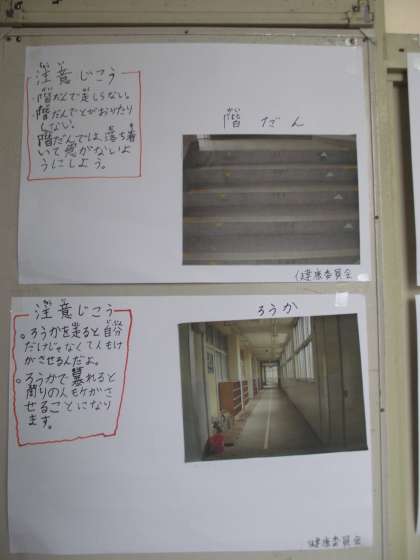 注意じこう
階だんで走しらない。
階だんでとびおりたり
しない。
階だんでは、落ち着
いて急がないよ
うにしよう。
階だん
かい
健康委員会
注意じこう
ろうかを走ると自分
だけじゃなくて人もけ
がさせるんだよ。
ろうかで暴れると
周りの人もケガさ
せることになり
ます。
ろうか
健康委員会